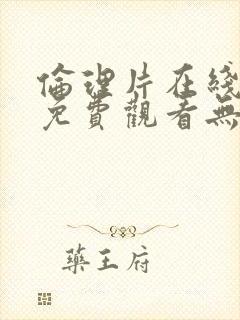 倫理片在綫
免費觀看無
藥王府